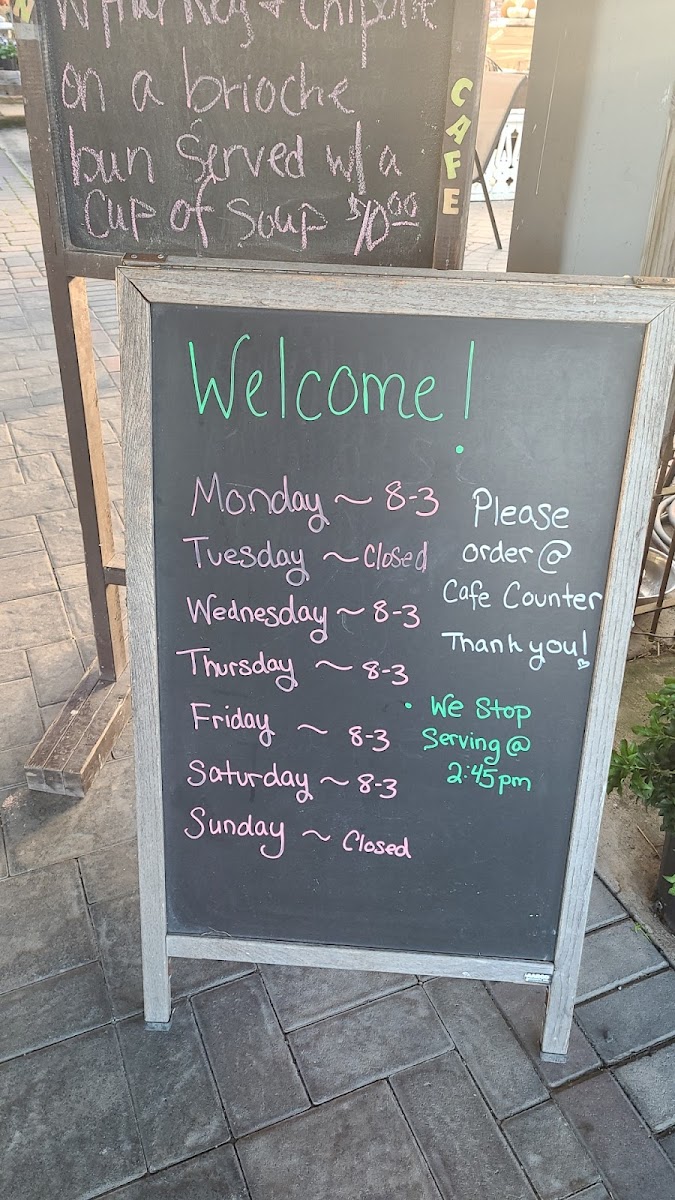 W/turkey + chipotle
on a brioche
bun Served w/ a
Cup of Soup $10.00
CAFE
Welcome!
Monday ~ 8-3
Tuesday ~ Closed
Wednesday ~ 8-3
Thursday ~ 8-3
Friday ~ 8-3
Saturday ~ 8-3
Sunday ~ Closed
Please
order @
Cafe Counter
Thank you!
• We Stop
Serving @
2:45pm